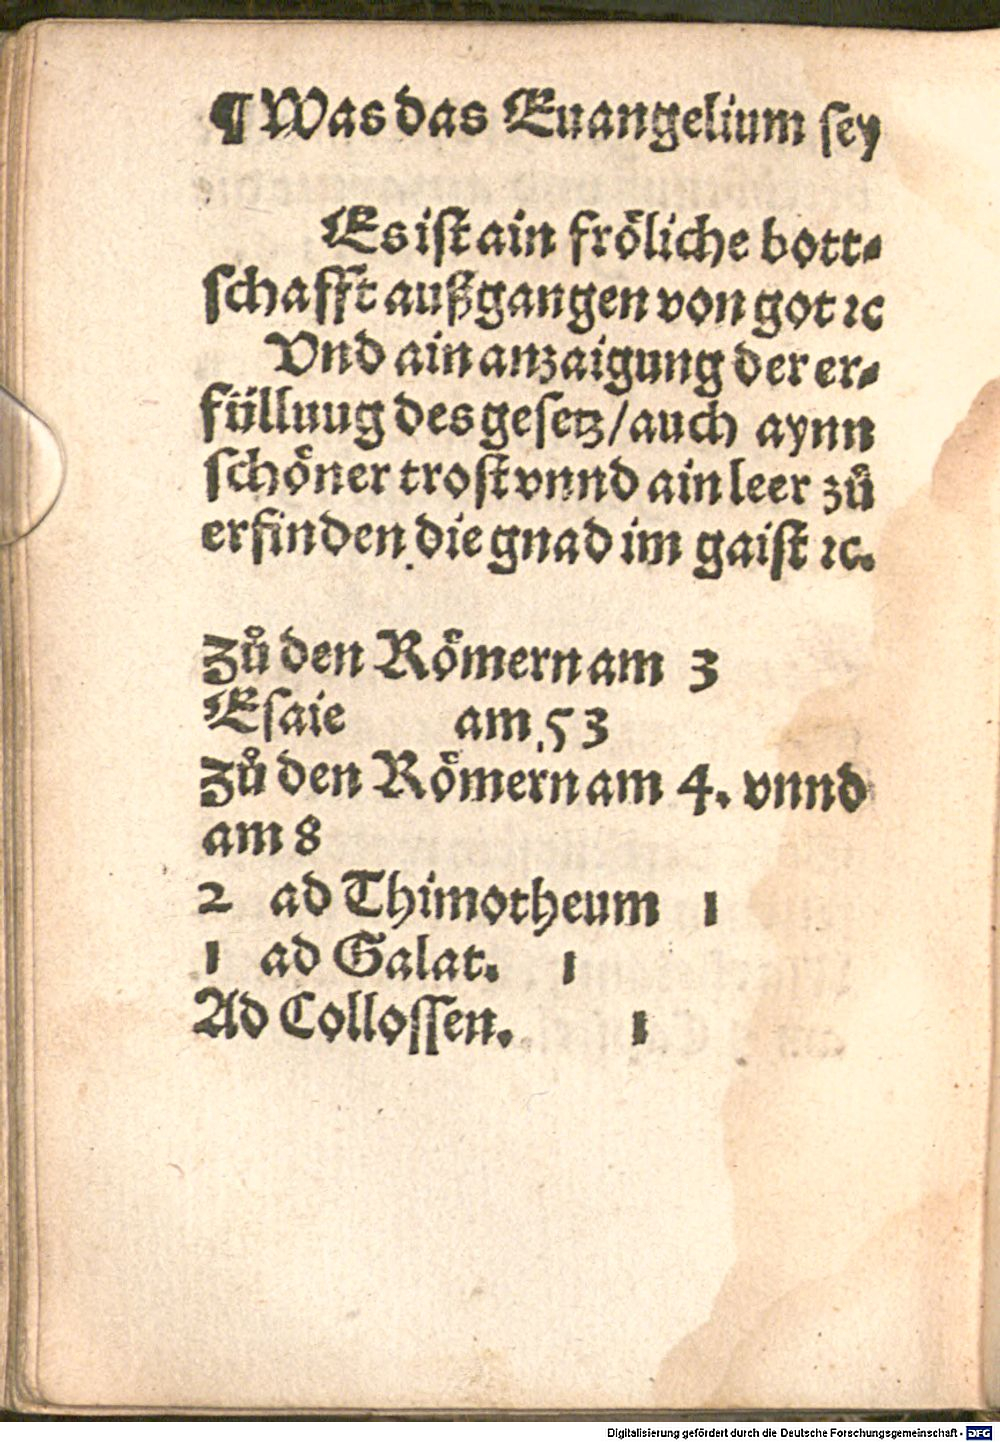 ¶ Was das Euangelium sey
Es ist ain froͤliche bott⸗
schafft außgangen von got ꝛc
Vnd ain anzaigung der er⸗
fülluug des gesetz/auch aynn
schoͤner trost vnnd ain leer zuͦ
erfinden die gnad im gaist ꝛc.
Zuͦ den Roͤmern am 3
Esaie am 53
Zuͦ den Roͤmern am 4. vnnd
am 8
2 ad Thimotheum 1
1 ad Galat. 1
Ad Collossen. 1
Digitalisierung gefördert durch die Deutsche Forschungsgemeinschaft - DFG